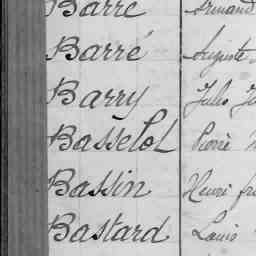 Barré Armand
Barré Auguste
Barry Jules
Basselol Pierre
Bassin Henri
Bastard Louis